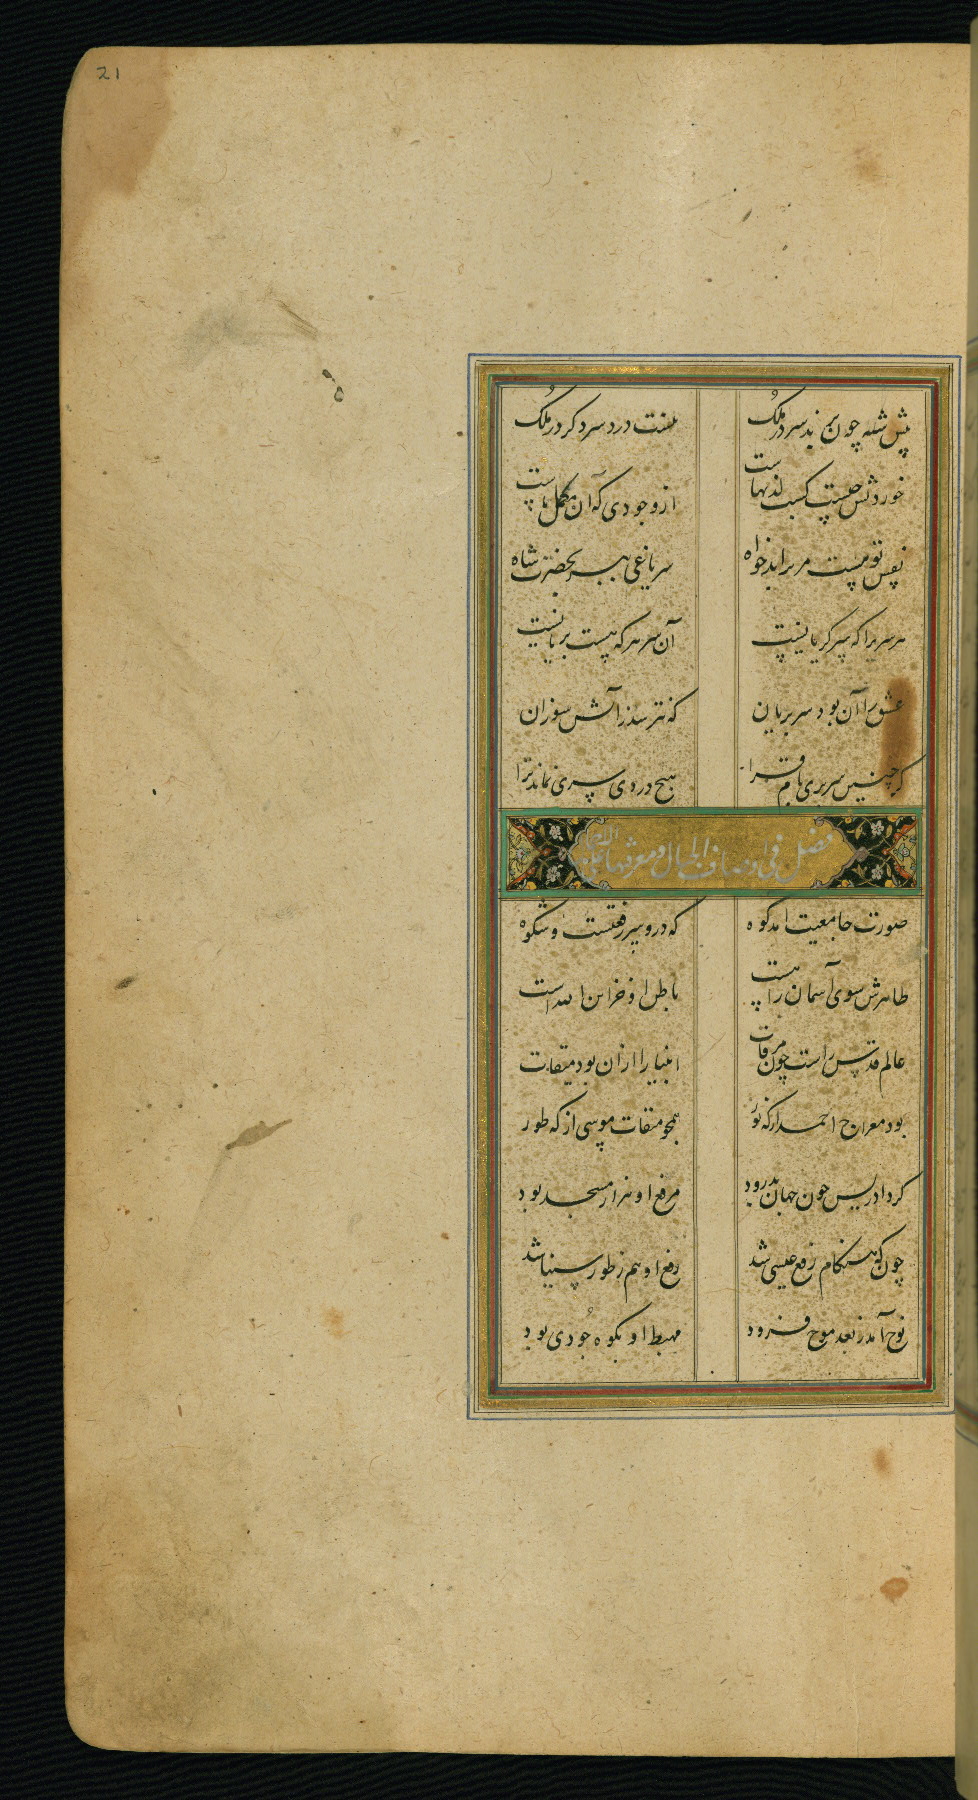 21
پیش شه چون برند سر در ملک نیست درد سر دگر در ملک
خوردنش چیست کسب لذتهاست از وجودی که آن مکمل ماست
نفس تو نیست مر ترا بدخواه سر یاغی ببر بحضرت شاه
هر سریرا که سیر کریا نیست آن سر هر که هست بریا نیست
عشق را آن بود سر بریان که نترسد ز آتش سوزان
گر چنین سر بری بیابم ترا هیچ دردی سری نماند ترا
فصل فی اوصاف الجبال و معرفتها
صورت جامعیت آمد کوه که درو سر رفعتست و شکوه
ظاهرش سوی آسمان راهست باطن او خزاین الله است
عالم قدس راست چون مرقات انبیا را ازان بود میقات
بود معراج احمد از که نور همچو میقات موسی از که طور
کرد ادریس چون جهان بدرود مرفع او نه از مسجد بود
چون که هنگام رفع عیسی شد رفع او هم ز طور سینا شد
نوح آمد ز بعد موج فرود مهبط او بکوه جودی بود